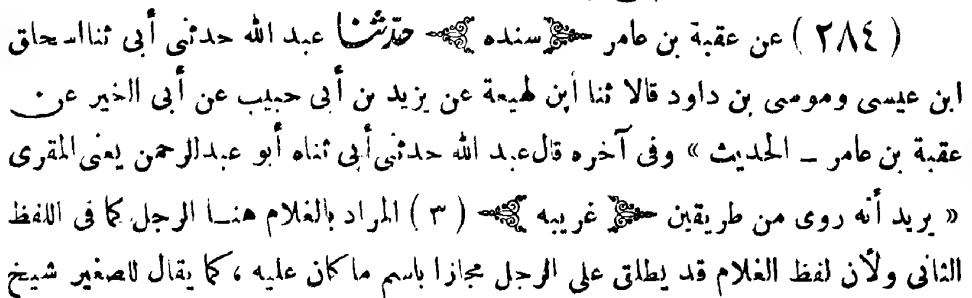 ( ٢٨٤ ) عن عقبة بن عامر سنده حدثنا عبد الله حدثنى أبى ثنا اسحاق
ابن عيسى وموسى بن داود قالا ثنا ابن لهيعة عن يزيد بن أبى حبيب عن أبى الخير عن
عقبة بن عامر ــ الحديث » وفى آخره قال عبد الله حدثنى أبى ثناه أبو عبدالرحمن يعنى المقرى
« يريد أنه روى من طريقين غريبه ( ٣ ) المراد بالغلام هنا الرجل كما فى اللفظ
الثانى ولأن لفظ الغلام قد يطلق على الرجل مجازا باسم ما كان عليه ، كما يقال للصغير شيخ